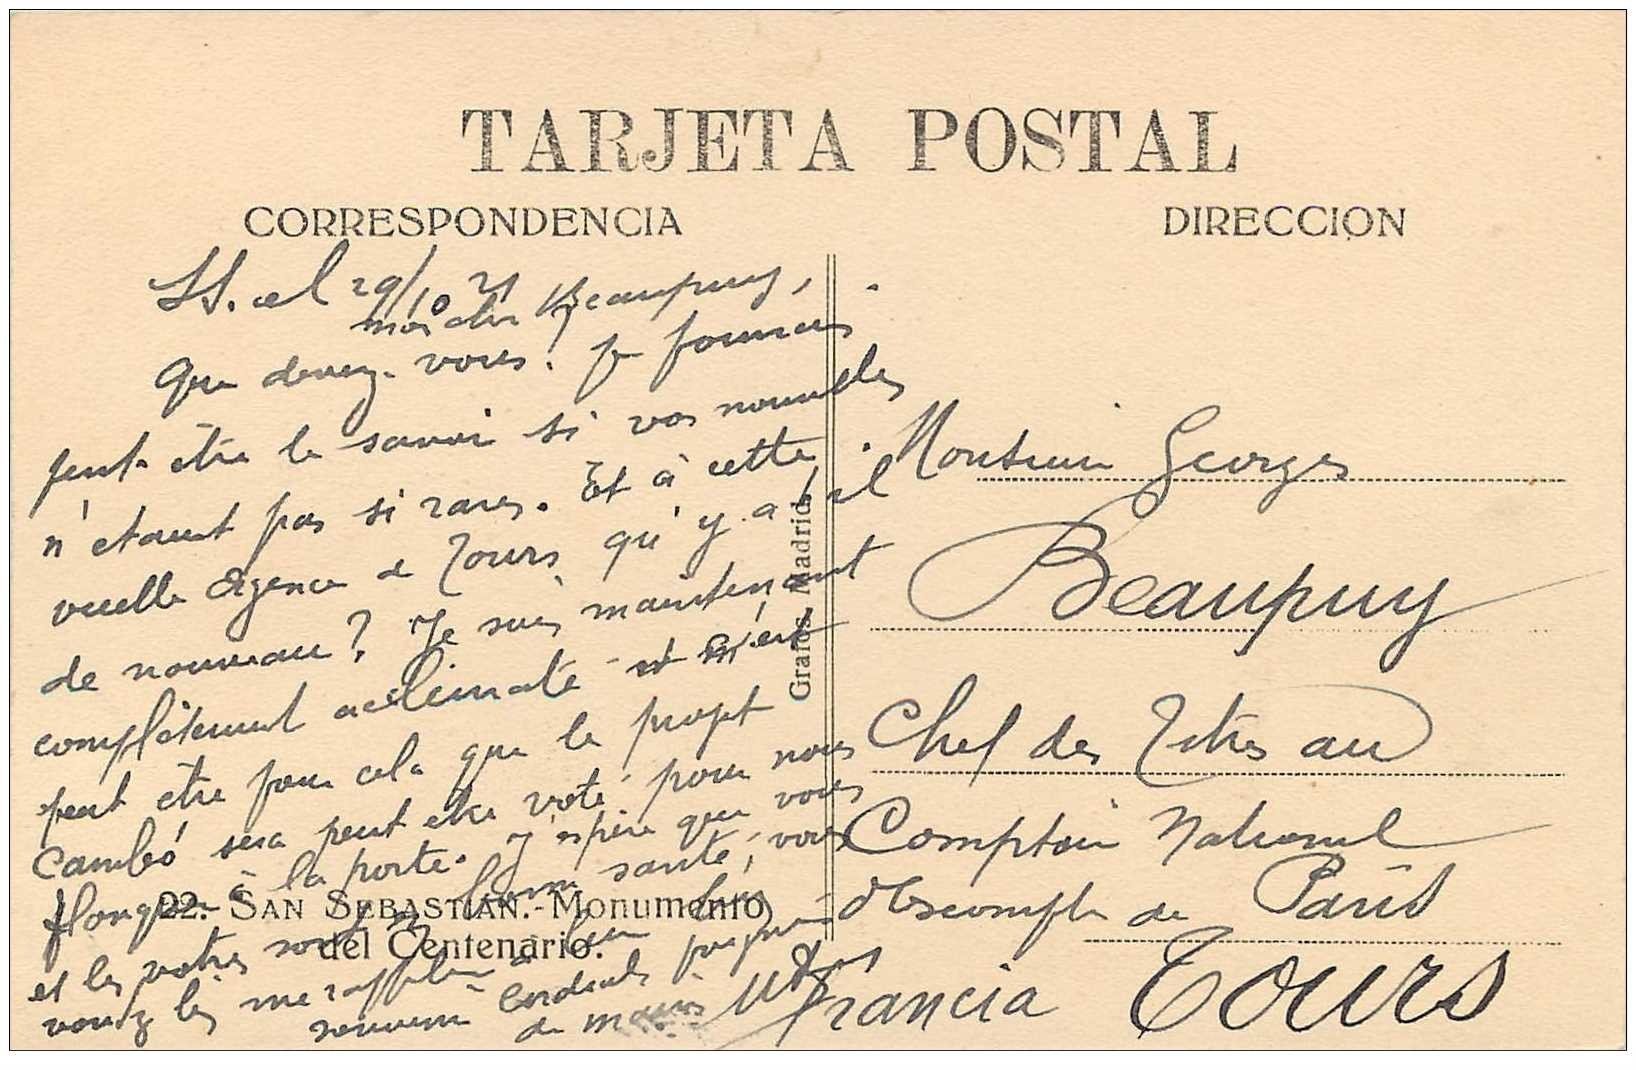 TARJETA POSTAL
CORRESPONDENCIA
DIRECCION
SS. el 29/10 21
mon cher Beaupuy,
Que devenez-vous? Je pourrais
peut-être le savoir si vos nouvelles
n'étaient pas si rares. Et à cette
vieille Agence de Tours qu'y a-t-il
de nouveau? Je suis maintenant
complètement acclimaté et c'est
peut être pour cela que le projet
Cambó sera peut etre voté pour nous
flanquer à la porte. J'espère que vous
et les votres sont en bonne santé, vous
voudrez bien me rappeler à leur bon
souvenir Cordiale poignée
de mains
Grafos, Madrid
22. SAN SEBASTIAN.-Monumento
del Centenario.
Monsieur Georges
Beaupuy
Chef des Titres au
Comptoir National
d'Escompte de Paris
Tours
Francia